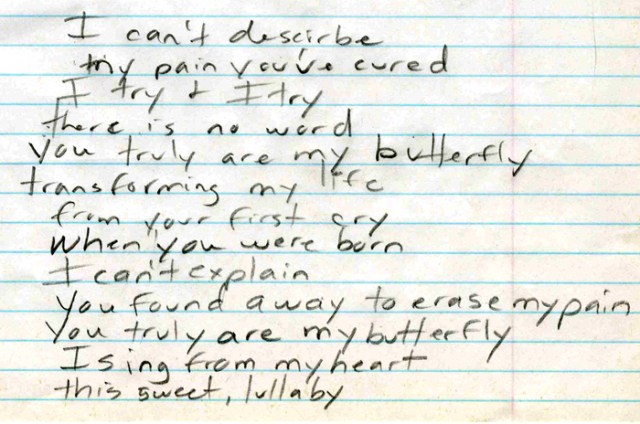 I can't descirbe
my pain you've cured
I try & I try
there is no word
You truly are my butterfly
transforming my life
from your first cry
when you were born
I can't explain
You found a way to erase my pain
You truly are my butterfly
I sing from my heart
this sweet, lullaby